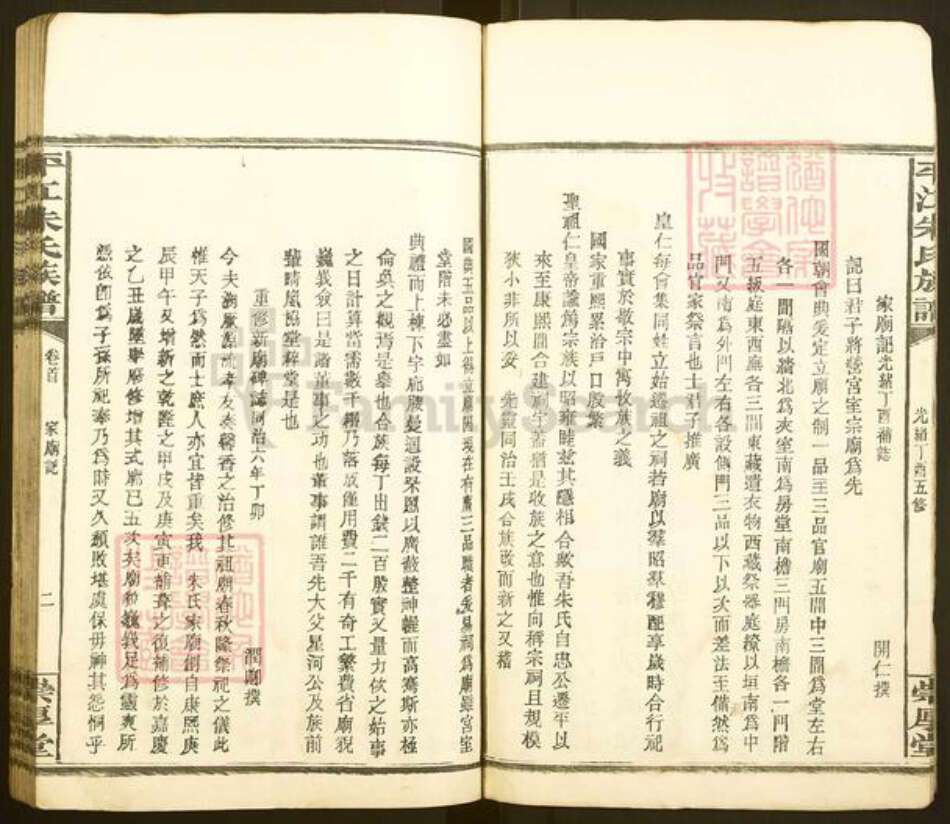 平江朱氏族譜
光緒丁酉五修
崇厚堂
家廟記光緒丁酉補誌
開仁撰
記曰君子將營宮室宗廟爲先
國朝會典爰定立廟之制一品至三品官廟五間中三間爲堂左右
各一間隔以牆北爲夾室南爲房堂南檐三門房南檐各一門階
五級庭東西廡各三間東藏遺衣物西藏祭器庭繚以垣南爲中
門又南爲外門左右各設側門三品以下以次而差法至備然爲
品官家祭言也士君子推廣
皇仁每會集同姓立始遷祖之祠若廟以羣昭羣穆配享歲時合行祀
事實於敬宗中寓收族之義
國家軍熙累洽戶口殷繁
聖祖仁皇帝諭篤宗族以昭雍睦茲其隱相合歟吾朱氏自忠公遷平以
來至康熙間合建祠宇蓋猶是收族之意也惟向稱宗祠且規模
狹小非所以妥 先靈同治壬戌合族改而新之又稽
國典五品以上得立廟
現在有
三品職者
祠爲廟雖宮室
堂階未必盡如
典禮而上棟下宇
設
以廣
整神幄而高騫斯亦極
侖奐之觀焉是舉也合族每丁出錢二百殷實又量力佽之始事
之日計算嘗需數千緡乃落成僅用費二千有奇工繁費省廟貌
巍我僉曰是諸董事之功也董事謂誰吾先大父星河公及族前
輩晴嵐協堂粹堂是也
重修新廟碑誌同治六年丁卯
潤
撰
今夫溯
孝友奏馨香之治修其祖廟春秋隆祭祀之儀此
惟天子爲然而士庶人亦宜皆重矣我 朱氏家廟創自康熙庚
辰甲午又增新之乾隆之甲戌及庚寅重補葺之復補修於嘉慶
之乙丑
增其式廓已五次矣廟貌巍峩足爲靈爽所
憑依卽爲子孫所祀奉乃爲時又久頹敗堪虞保毋神其怨恫乎
平江朱氏族譜
卷首
家廟記
二
崇厚堂